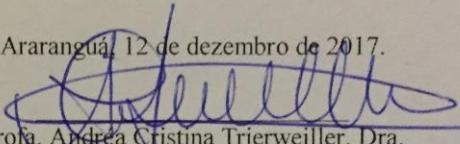 Araranguá, 12 de dezembro de 2017.
rofa. Andréa Cristina Trierweiller, Dra.